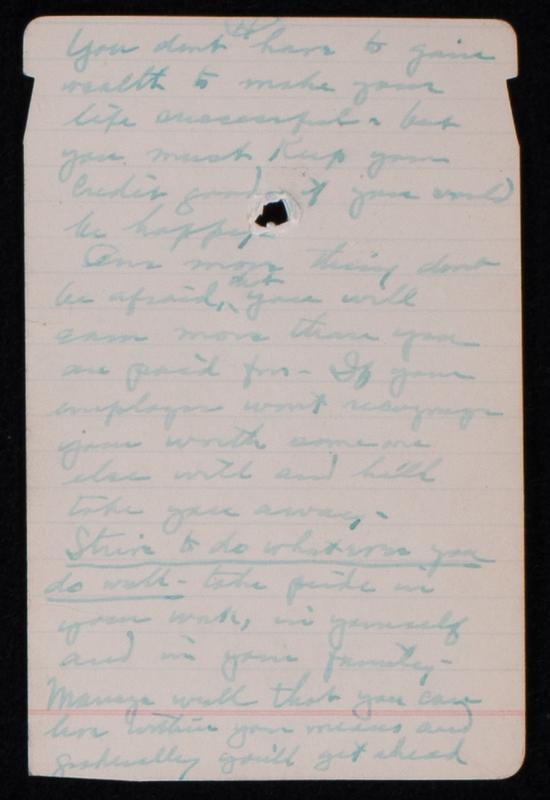 You dont have to gain
wealth to make your
life successful - but
you must keep your
Credit good if you would
be happy.
One more thing dont
be afraid, that you will
earn more than you
are paid for - If your
employer wont recognize
your worth some one
else will and he'll
take you away -
Strive to do whatever you
do well - take pride in
your work, in yourself
and in your family -
Manage well that you can
live within your means and
gradually you'll get ahead